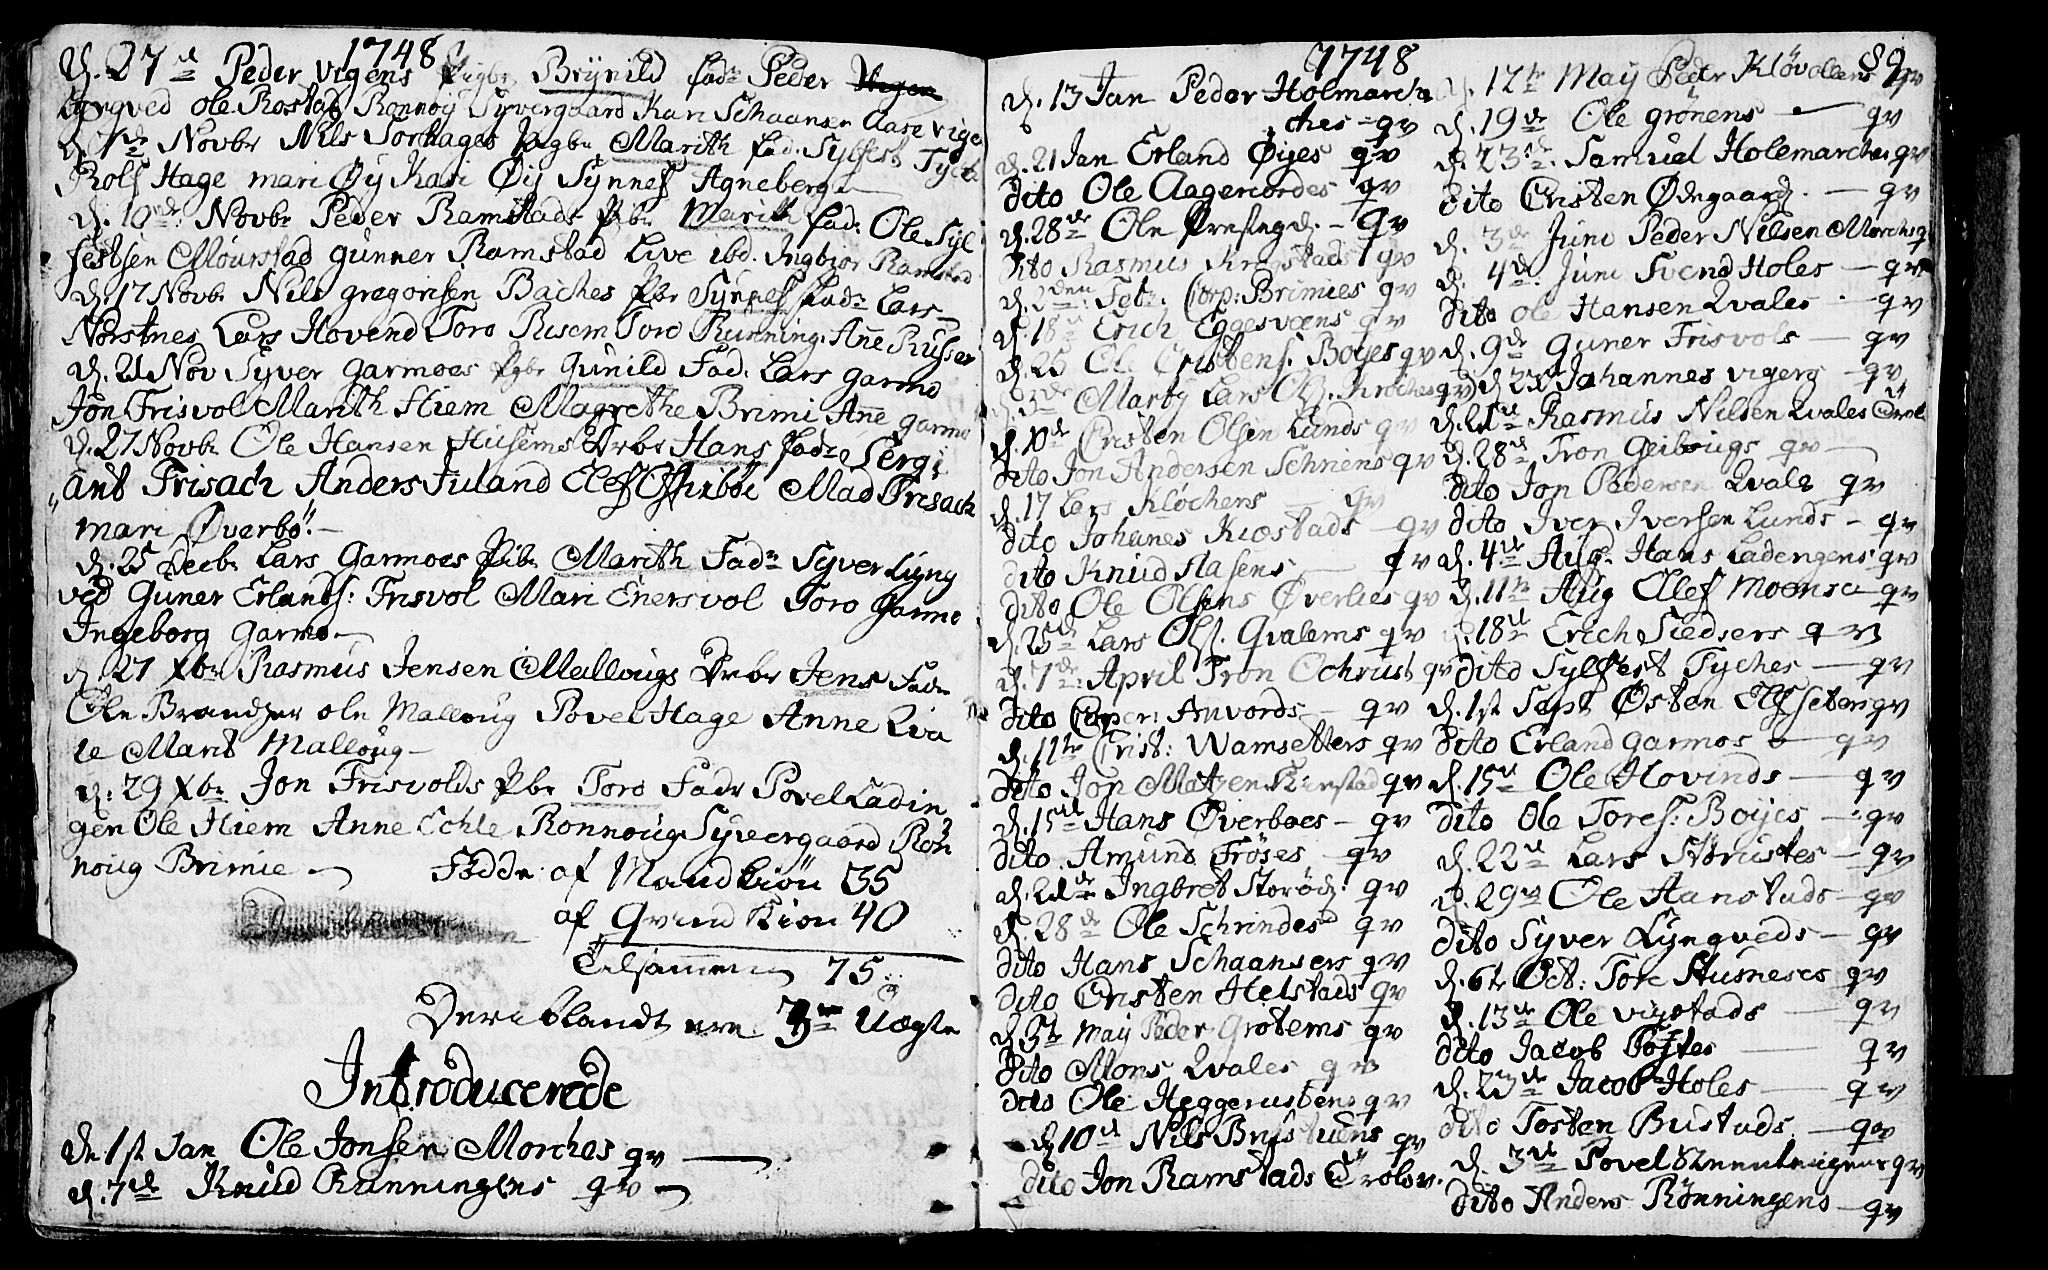 1748
d. 27de Peder Vigens Pigbr Brynild fad. Peder
Lyngved Ole Rostad Ronnoy Syvergaard Kari Schaansar Aase Vige
d. 1de Novbr Nils Sorhages Pigbr Marith fad. Sylfest Tyche
Rolf Hage mari Øy Kari Øy Synnef Agneberg
d. 10de Novbr Peder Ramstads Pbr Marith fad. Ole Syl
festsen Mourstad gunner Ramstad Live ibd. Ingbior Ramstad
d. 17 Novbr Nils gregorisen Baches Pbr Synnef fadr Lars
Norstnes Lars Hovend Toro Risem Toro Running Anne Russar
d. 21 Nov Syver Garmoes Pgbr Gunild Fad. Lars garmo
Jon Frisvol Marith Hiem Magrethe Brimi Anne garmo
d. 27 Novbr Ole Hansen Husems Drbr Hans fadr Sergi
ant Frisach Anders Juland Elef Mad Frisach
mari Øverbø
d. 25 Decbr Lars Garmoes Pibr Marith Fadr Syver Lyng
ved Guner Erlands: Frisvol Mari Enersvol Toro Garmo
Ingeborg Garmo
d. 27 Xbr Rasmus Jensen Mallougs Drbr Jens Fadr
Ole Brandser ole Malloug Povel Hage Anne Qva
le Marit Malloug
d. 29 Xbr Jon Frisvolds Pbr Toro Fadr Povel Ladin
gen Ole Hiem Anne Echle Ronnoug Syvergaard Rön
noug Brimie Födde af Mandkiön 35
af Qvind Kiön 40
Tilsammen 75
Deriblandt ere 3de Uægte
Introducerede
Dn 1st Jan Ole Jonsen Morches qv
d. 7de Knud Runningens qv
1748
d. 13 Jan Peder Holmarch
ches qv
d. 21 Jan Erland Øyes qv
dito Ole Aagerjordes qv
d. 28de Ole Prestegd. qv
dito Rasmus Krogstads qv
d. 2den Feb. Corp: Brimies qv
d. 18 Erich Eggesvæns qv
d. 25 Ole Cristens. Boyes qv
d. 3de Marty Lars Kirches qv
d. 10de Cristen Olsen Lunds qv
dito Jon Andersen Schriens qv
d. 17 Lars Kløchers qv
dito Johanes Kiøstads qv
dito Knud Hasens qv
dito Ole Olsens Øverlies qv
d. 25de Lars Ols. Qvalems qv
d. 7de April Tron Ochrust qv
dito Casper: Anvords qv
d. 11te Crist: Wamsetters qv
dito Jon Matzen Kirstad qv
d. 15de Hans Øverboes qv
dito Amund Frøses qv
d. 21de Ingbret Storød. qv
d. 28de Ole Schrindes qv
dito Hans Schaansers qv
dito Cristen Helstads qv
d. 5te May Peder Grotems qv
dito Mons Qvales qv
dito Ole Heggerustens qv
d. 10de Nils Brustuens qv
dito Jon Ramstads Trolov.
89
d. 12te May Peder Kløvolens qv
d. 19de Ole grönens qv
d. 23de Samuel Holemarches qv
dito Cristen Ødegaard. qv
d. 3de Juni Peder Nilsen Morches q
d. 4de Juni Svend Holes qv
dito ole Hansen Qvales qv
d. 9de Guner Frisvols qv
d. 23 Johannes vigerg qv
d. 21de Rasmus Nilsen Qvales Trol
d. 28de Tron Geibougs qv
dito Jon Pedersen Qvale qv
dito Iver Iversen Lunds qv
d. 4de Aug. Hans Ladengens qv
d. 11te Aug Ellef Moensa qv
d. 18de Erich Siedsers qv
dito Sylfest Tyches qv
d. 1st Sept Østen Elfseters qv
dito Erland garmos qv
d. 15de Ole Hovinds qv
dito Ole Tores: Boyes qv
d. 22de Lars Størustes qv
d. 29de Ole Hanstads qv
dito Syver Lyngveds qv
d. 6te Oct: Tore Husneses qv
d. 13de Ole vigstads qv
dito Jacob Postes qv
d. 23de Jacob Holes qv
dito Tosten Bustads qv
d. 3de Povel qv
dito Anders Rønningens qv